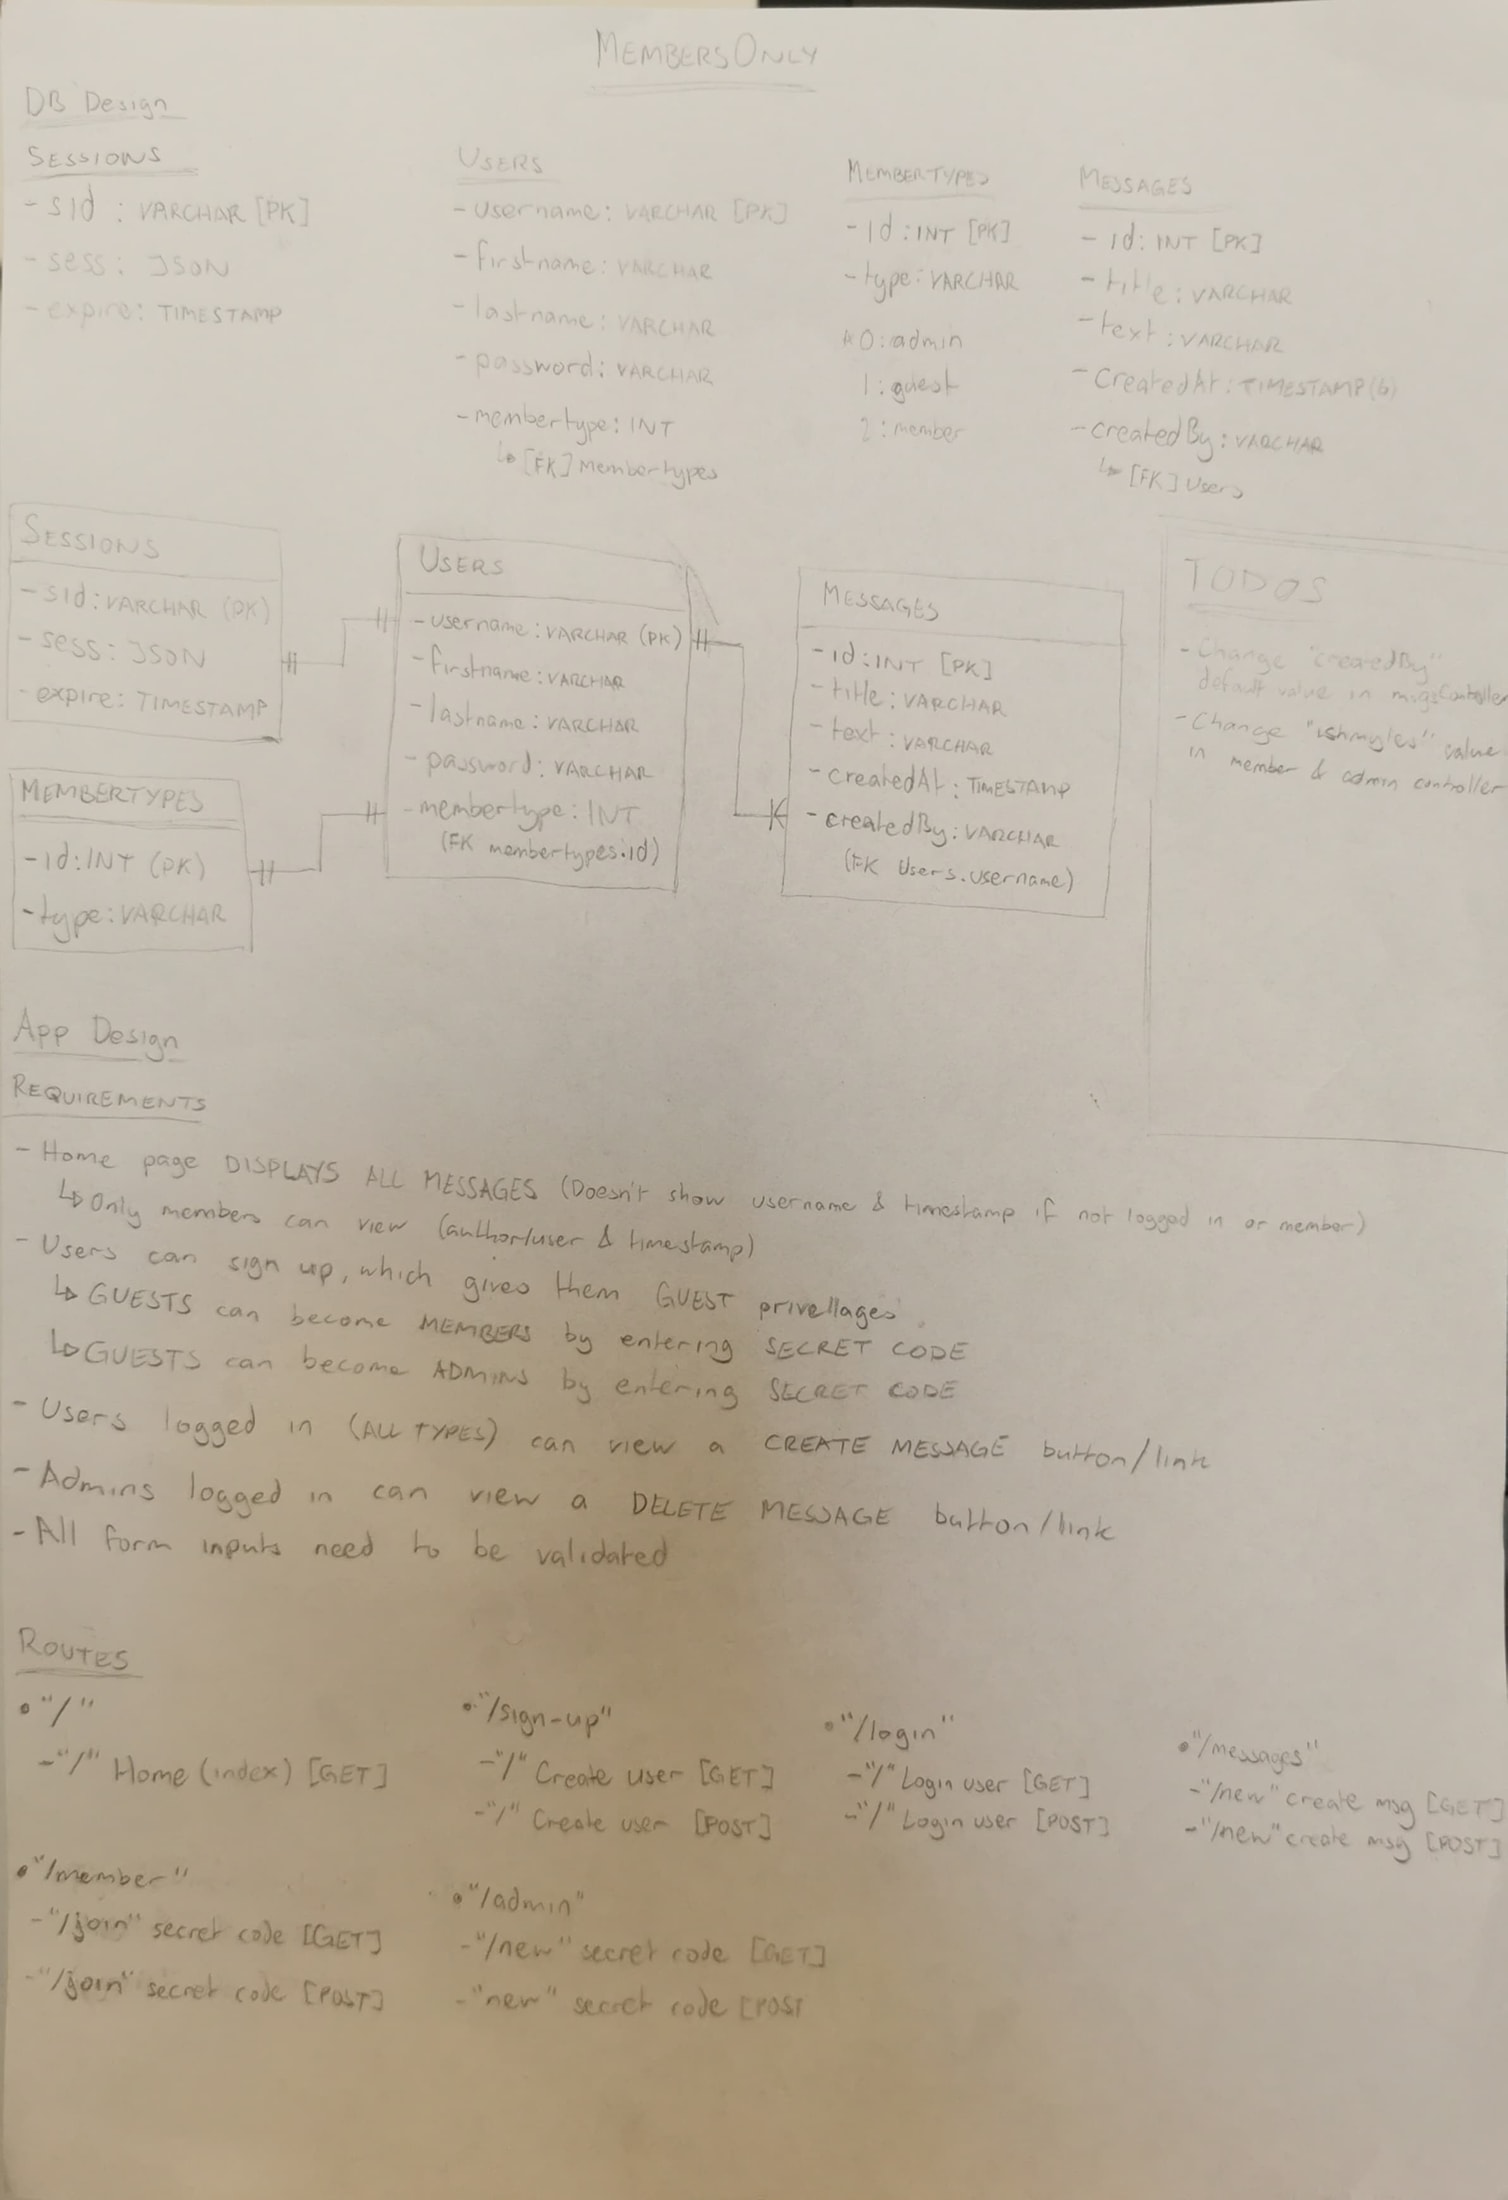 MEMBERSONLY
DB Design
SESSIONS
- sid : VARCHAR [PK]
- sess: JSON
- expire: TIMESTAMP
USERS
- username: VARCHAR [PK]
- firstname: VARCHAR
- lastname: VARCHAR
- password: VARCHAR
- membertype: INT
↳ [FK] Membertypes
MEMBERTYPES
- id: INT [PK]
- type: VARCHAR
* 0: admin
1: guest
2: member
MESSAGES
- id: INT [PK]
- title: VARCHAR
- text: VARCHAR
- CreatedAt: TIMESTAMP(6)
- createdBy: VARCHAR
↳ [FK] Users
SESSIONS
- sid: VARCHAR (PK)
- sess: JSON
- expire: TIMESTAMP
MEMBERTYPES
- id: INT (PK)
- type: VARCHAR
USERS
- username: VARCHAR (PK)
- firstname: VARCHAR
- lastname: VARCHAR
- password: VARCHAR
- membertype: INT
(FK membertypes.id)
MESSAGES
- id: INT [PK]
- title: VARCHAR
- text: VARCHAR
- createdAt: TIMESTAMP
- createdBy: VARCHAR
(FK Users.username)
TODOS
- Change "createdBy"
default value in msgsController
- Change "ishmyles" value
in member & admin controller
App Design
REQUIREMENTS
- Home page DISPLAYS ALL MESSAGES (Doesn't show username & timestamp if not logged in or member)
↳ Only members can view (author/user & timestamp)
- Users can sign up, which gives them GUEST privellages.
↳ GUESTS can become MEMBERS by entering SECRET CODE
↳ GUESTS can become ADMINS by entering SECRET CODE
- Users logged in (ALL TYPES) can view a CREATE MESSAGE button/link
- Admins logged in can view a DELETE MESSAGE button/link
- All form inputs need to be validated
ROUTES
• "/"
- "/" Home (index) [GET]
• "/sign-up"
- "/" Create user [GET]
- "/" Create user [POST]
• "/login"
- "/" Login user [GET]
- "/" Login user [POST]
• "/messages"
- "/new" create msg [GET]
- "/new" create msg [POST]
• "/member"
- "/join" secret code [GET]
- "/join" secret code [POST]
• "/admin"
- "/new" secret code [GET]
- "new" secret code [POST